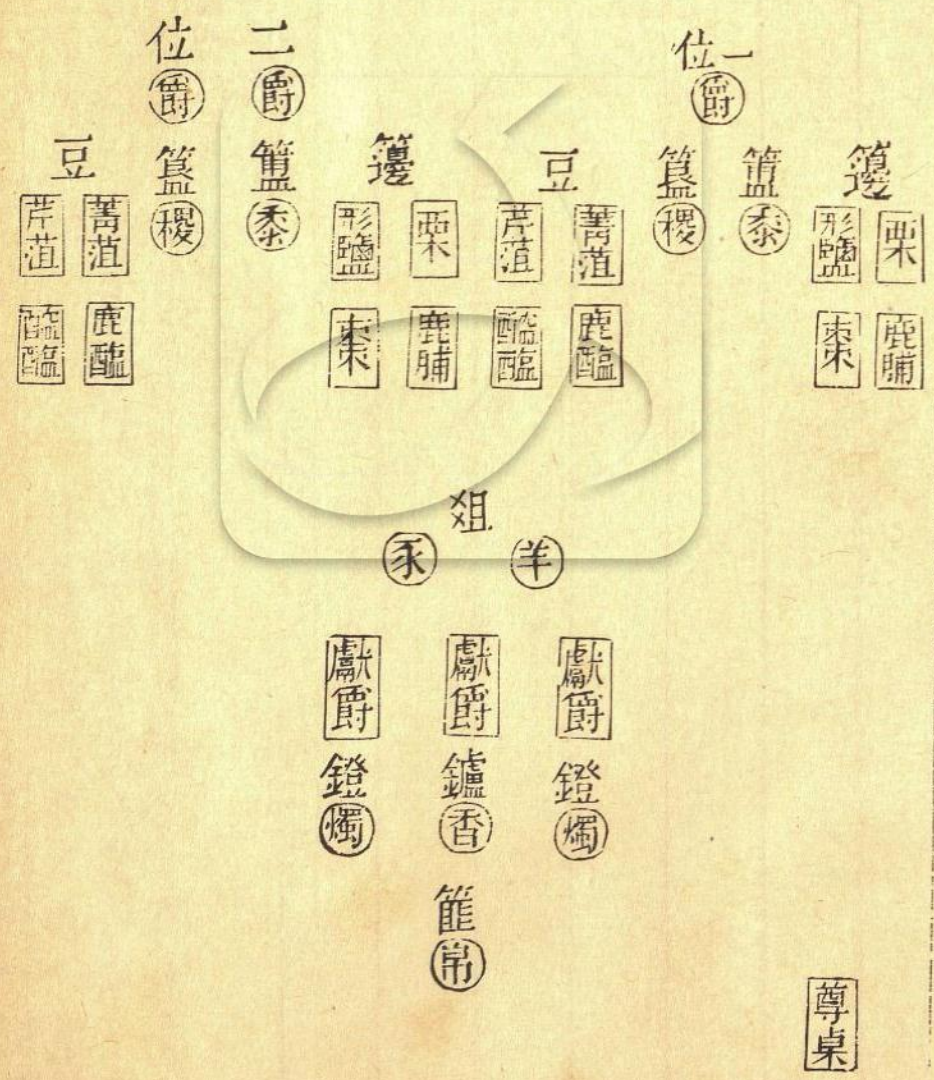 一位
爵
籩
栗
形鹽
鹿脯
棗
簠
黍
簋
稷
豆
菁菹
芹菹
鹿醢
醓醢
二位
爵
爵
籩
栗
形鹽
鹿脯
棗
簠
黍
簋
稷
豆
菁菹
芹菹
鹿醢
醓醢
俎
羊
豕
獻爵
獻爵
獻爵
鐙
燭
鑪
香
鐙
燭
篚
帛
尊桌